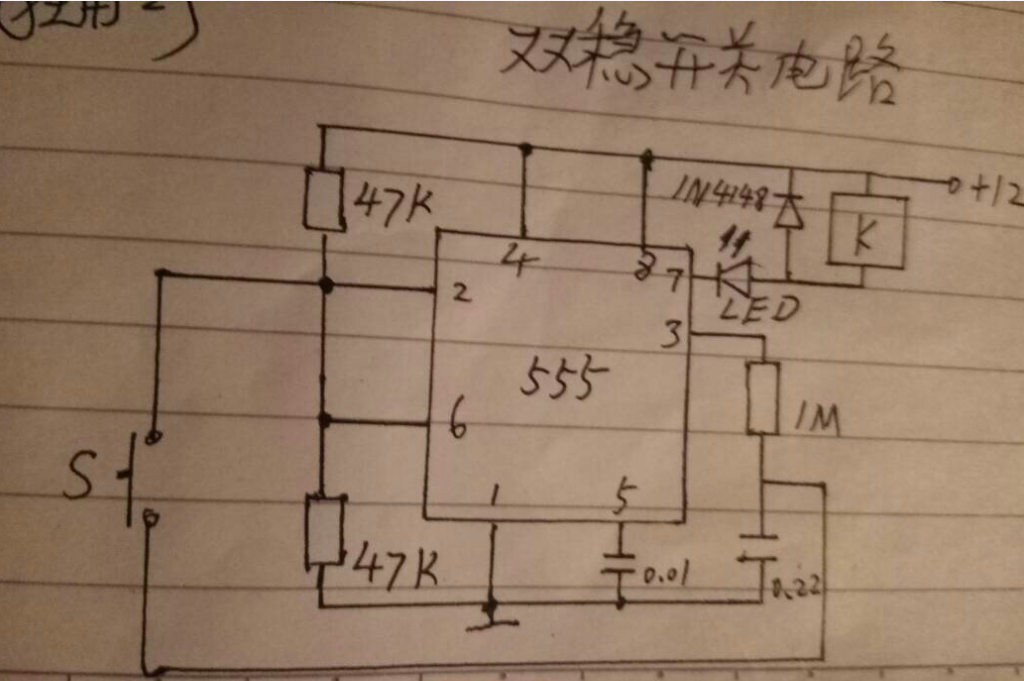 (应用2)
双稳开关电路
47K
1N4148
+12
K
4
8
7
LED
2
3
555
1M
6
S
1
5
47K
0.01
0.22